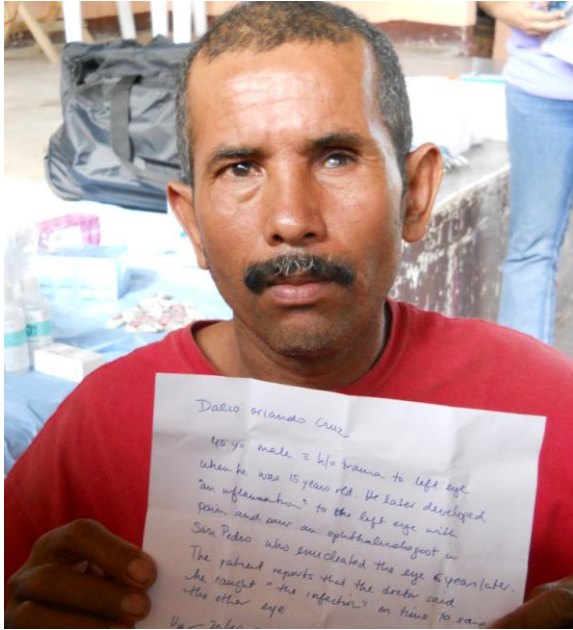 Dario Orlando Cruz
45 yo male c̄ h/o trauma to left eye
when he was 15 years old. He later developed
"an inflammation" to the left eye with
pain and saw an ophthalmologist in
San Pedro who enucleated the eye 6 years later.
The patient reports that the doctor said
he caught "the infection" on time to save
the other eye